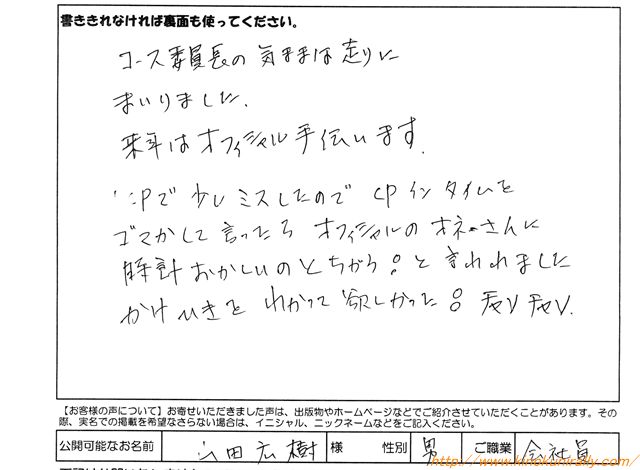 書ききれなければ裏面も使ってください。
コース委員長の気ままは走りに
まいりました.
来年はオフィシャル手伝います.
CPで少しミスしたので CPインタイムを
ゴマかして言ったら オフィシャルのオネーさんに
時計おかしいのとちがう!と言われました
かけひきを わかって欲しかった! チャンチャン.
【お客様の声について】お寄せいただきました声は、出版物やホームページなどでご紹介させていただくことがあります。その
際、実名での掲載を希望なさらない場合は、イニシャル、ニックネームなどをご記入ください。
公開可能なお名前 田広樹 様 性別 男 ご職業 会社員
http://www.kinokunirally.com